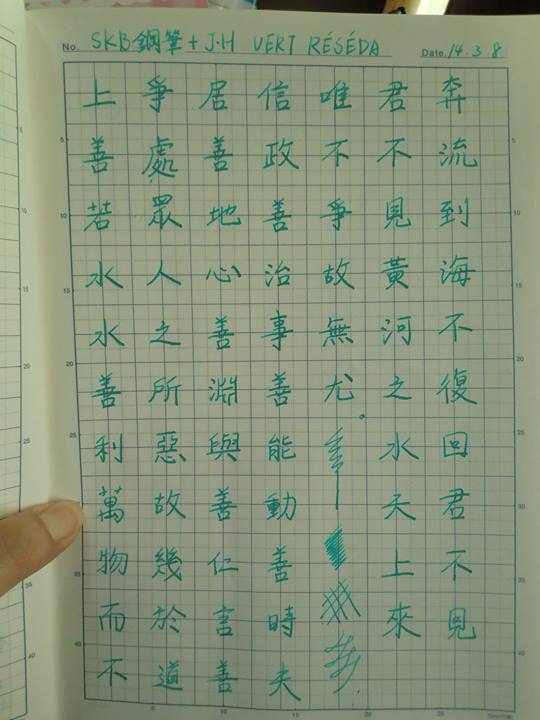 No. SKB鋼筆 + J.H VERT RÉSÉDA Date. 14.3.8
上善若水水善利萬物而不
爭處眾人之所惡故幾於道
居善地心善淵與善仁言善
信政善治事善能動善時夫
唯不爭故無尤。
君不見黃河之水天上來
奔流到海不復回君不見